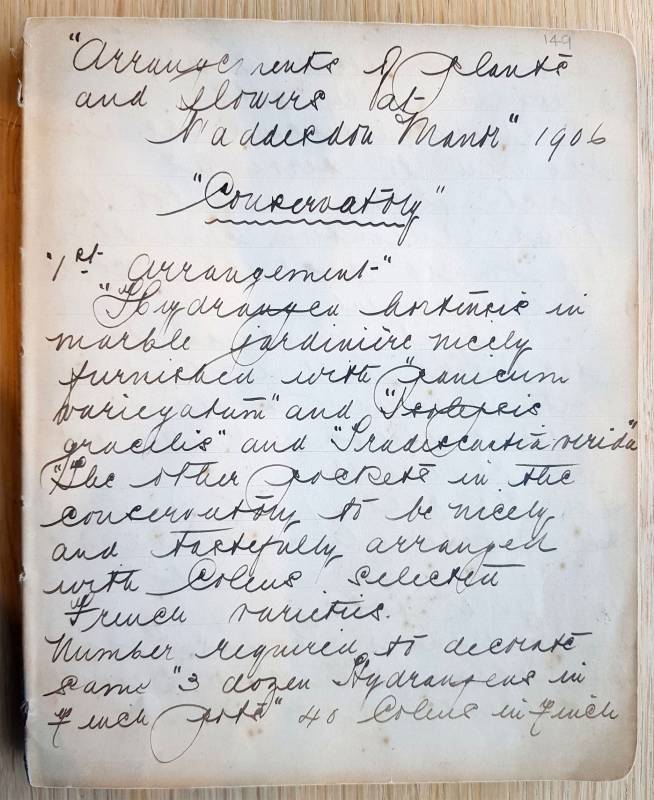 149
"Arrangements of plants
and flowers at
Waddesdon Manor" 1906
"Conservatory"
"1st arrangement"
"Hydrangea hortensis in
marble jardinière nicely
furnished with "panicum
variegatum" and "Isolepsis
gracilis" and "Tradescantia verida"
"The other pockets in the
conservatory to be nicely
and tastefully arranged
with Coleus selected
French varieties.
Number required to decorate
same "3 dozen Hydrangeas in
7 inch pots" 40 Coleus in 7 inch